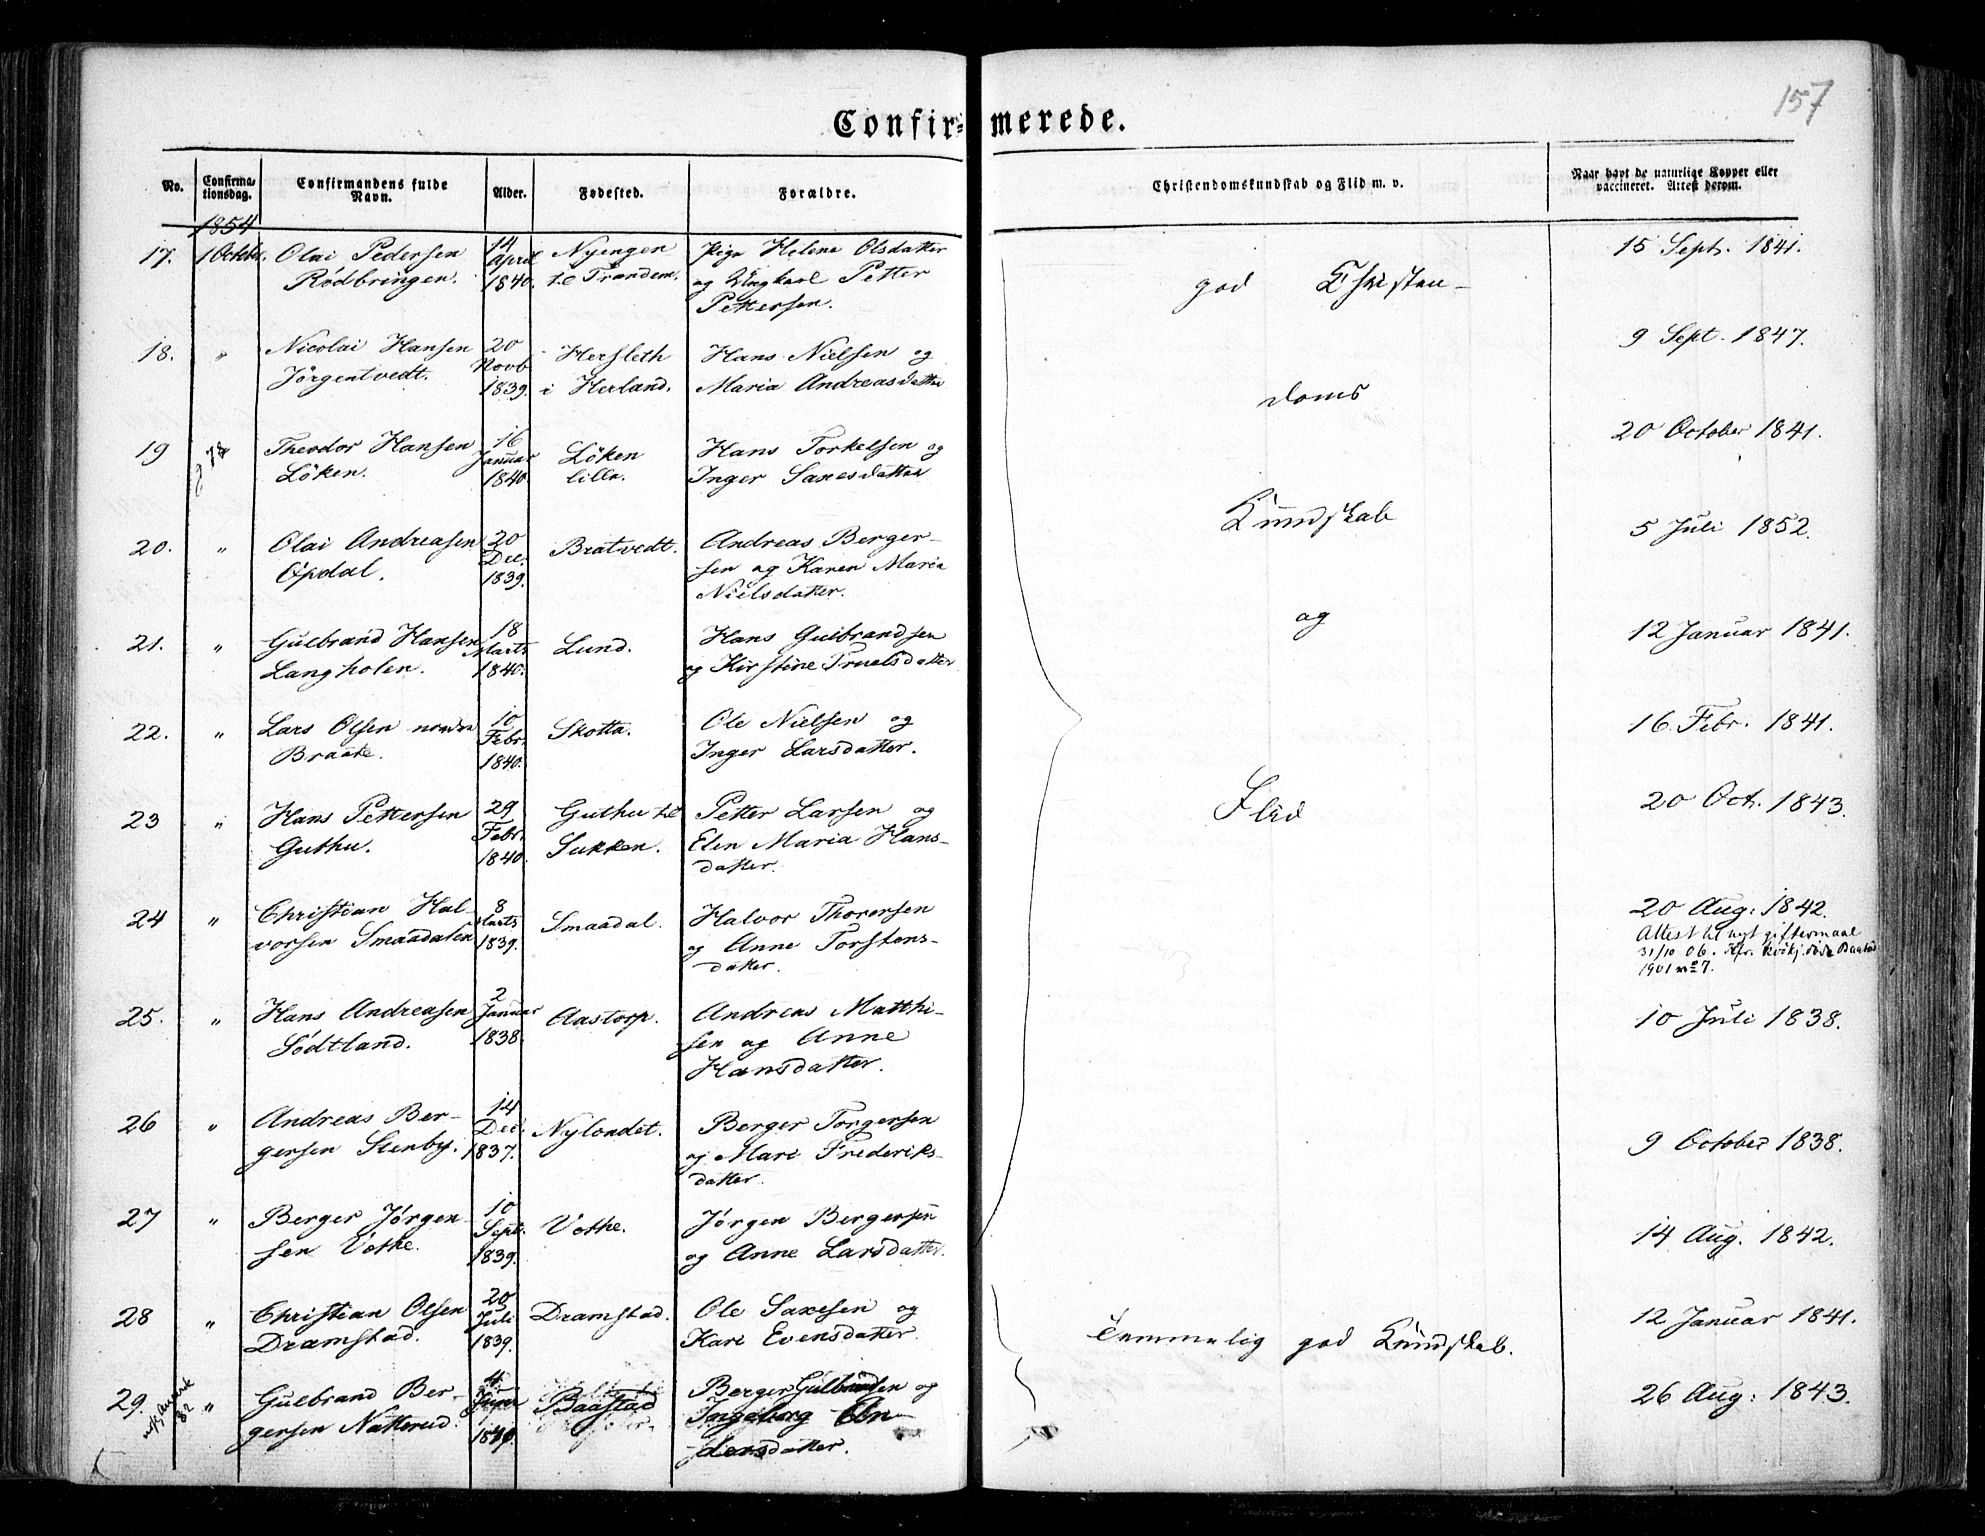 157
Confir= merede.
No.
Confirma-
tionsdag.
Confirmandens fulde
Navn.
Alder.
Fødested.
Forældre.
Christendomskundskab og Flid m. v.
Naar havt de naturlige Kopper eller
vaccineret. Attest derom.
1854
17. 1 Octobr. Olai Pedersen 14 Nyengen Pige Helene Olsdatter 15 Sept. 1841.
Rödbringen. April til Trandem. og Ungkarl Petter god Christen-
1840. Pettersen.
18. " Nicolai Hansen 20 Hersleth Hans Nielsen og 9 Sept. 1847.
Jörgentvedt. Novb. i Herland. Maria Andreasdatter doms
1839.
19 Theodor Hansen 16 Löken Hans Torkelsen og 20 October 1841.
Löken. Januar lille. Inger Saxesdatter
1840.
20. " Olai Andreasen 20 Bratvedt. Andreas Berger- Kundskab 5 Juli 1852.
Opdal. Dec. sen og Karen Maria
1839. Nielsdatter.
21. " Gulbrand Hansen 18 Lund. Hans Gulbrandsen og 12 Januar 1841.
Langholen. Marts og Kirstine Truelsdatter
1840.
22. " Lars Olsen nordre 10 Skotta. Ole Nielsen og 16 Febr. 1841.
Braate. Febr. Inger Larsdatter.
1840.
23 " Hans Pettersen 29 Guthu til Petter Larsen og Flid 20 Oct. 1843.
Guthu. Febr. Sukken. Elen Maria Hans-
1840. datter.
24 " Christian Hal- 8 Smaadal. Halvor Thorersen 20 Aug: 1842.
vorsen Smaadalen Marts og Anne Torstens- Attest til nyt giftermaal
1839. datter. 31/10 06. Kfr. Baastad
1901 no 7.
25. " Hans Andreasen 2 Aastorp. Andreas Matthi- 10 Juli 1838.
Södtland. Januar sen og Anne
1838. Hansdatter.
26 " Andreas Ber- 14 Nylondet. Berger Torgersen
gersen Stenby. Dec. og Mari Frederiks- 9 October 1838.
1837. datter.
27 " Berger Jörgen- 10 Vothe. Jörgen Bergersen 14 Aug. 1842.
sen Vothe. Sept. og Anne Larsdatter.
1839.
28 " Christian Olsen 20 Dramstad. Ole Saxesen og 12 Januar 1841.
Dramstad. Juli Kari Evensdatter. Temmelig god Kundskab.
1839.
29. " Gulbrand Ber- 4 Baastad Berger Gulbrandsen og 26 Aug: 1843.
gersen Natterud. Ingeborg
1840. datter.
82